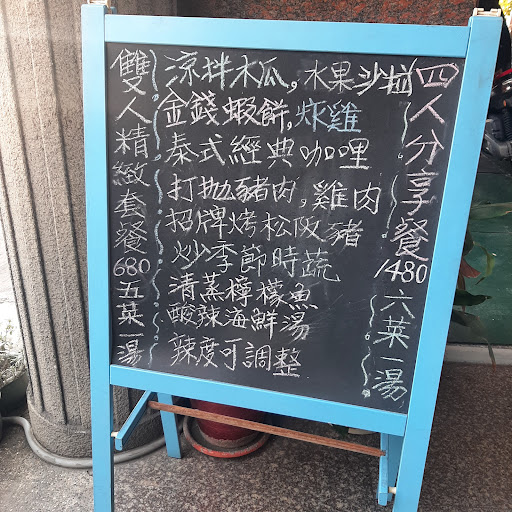 雙人精緻套餐680五菜一湯
涼拌木瓜,水果沙拉
金錢蝦餅,炸雞
泰式經典咖哩
打拋豬肉,雞肉
招牌烤松阪豬
炒季節時蔬
清蒸檸檬魚
酸辣海鮮湯
辣度可調整
四人分享餐1480六菜一湯